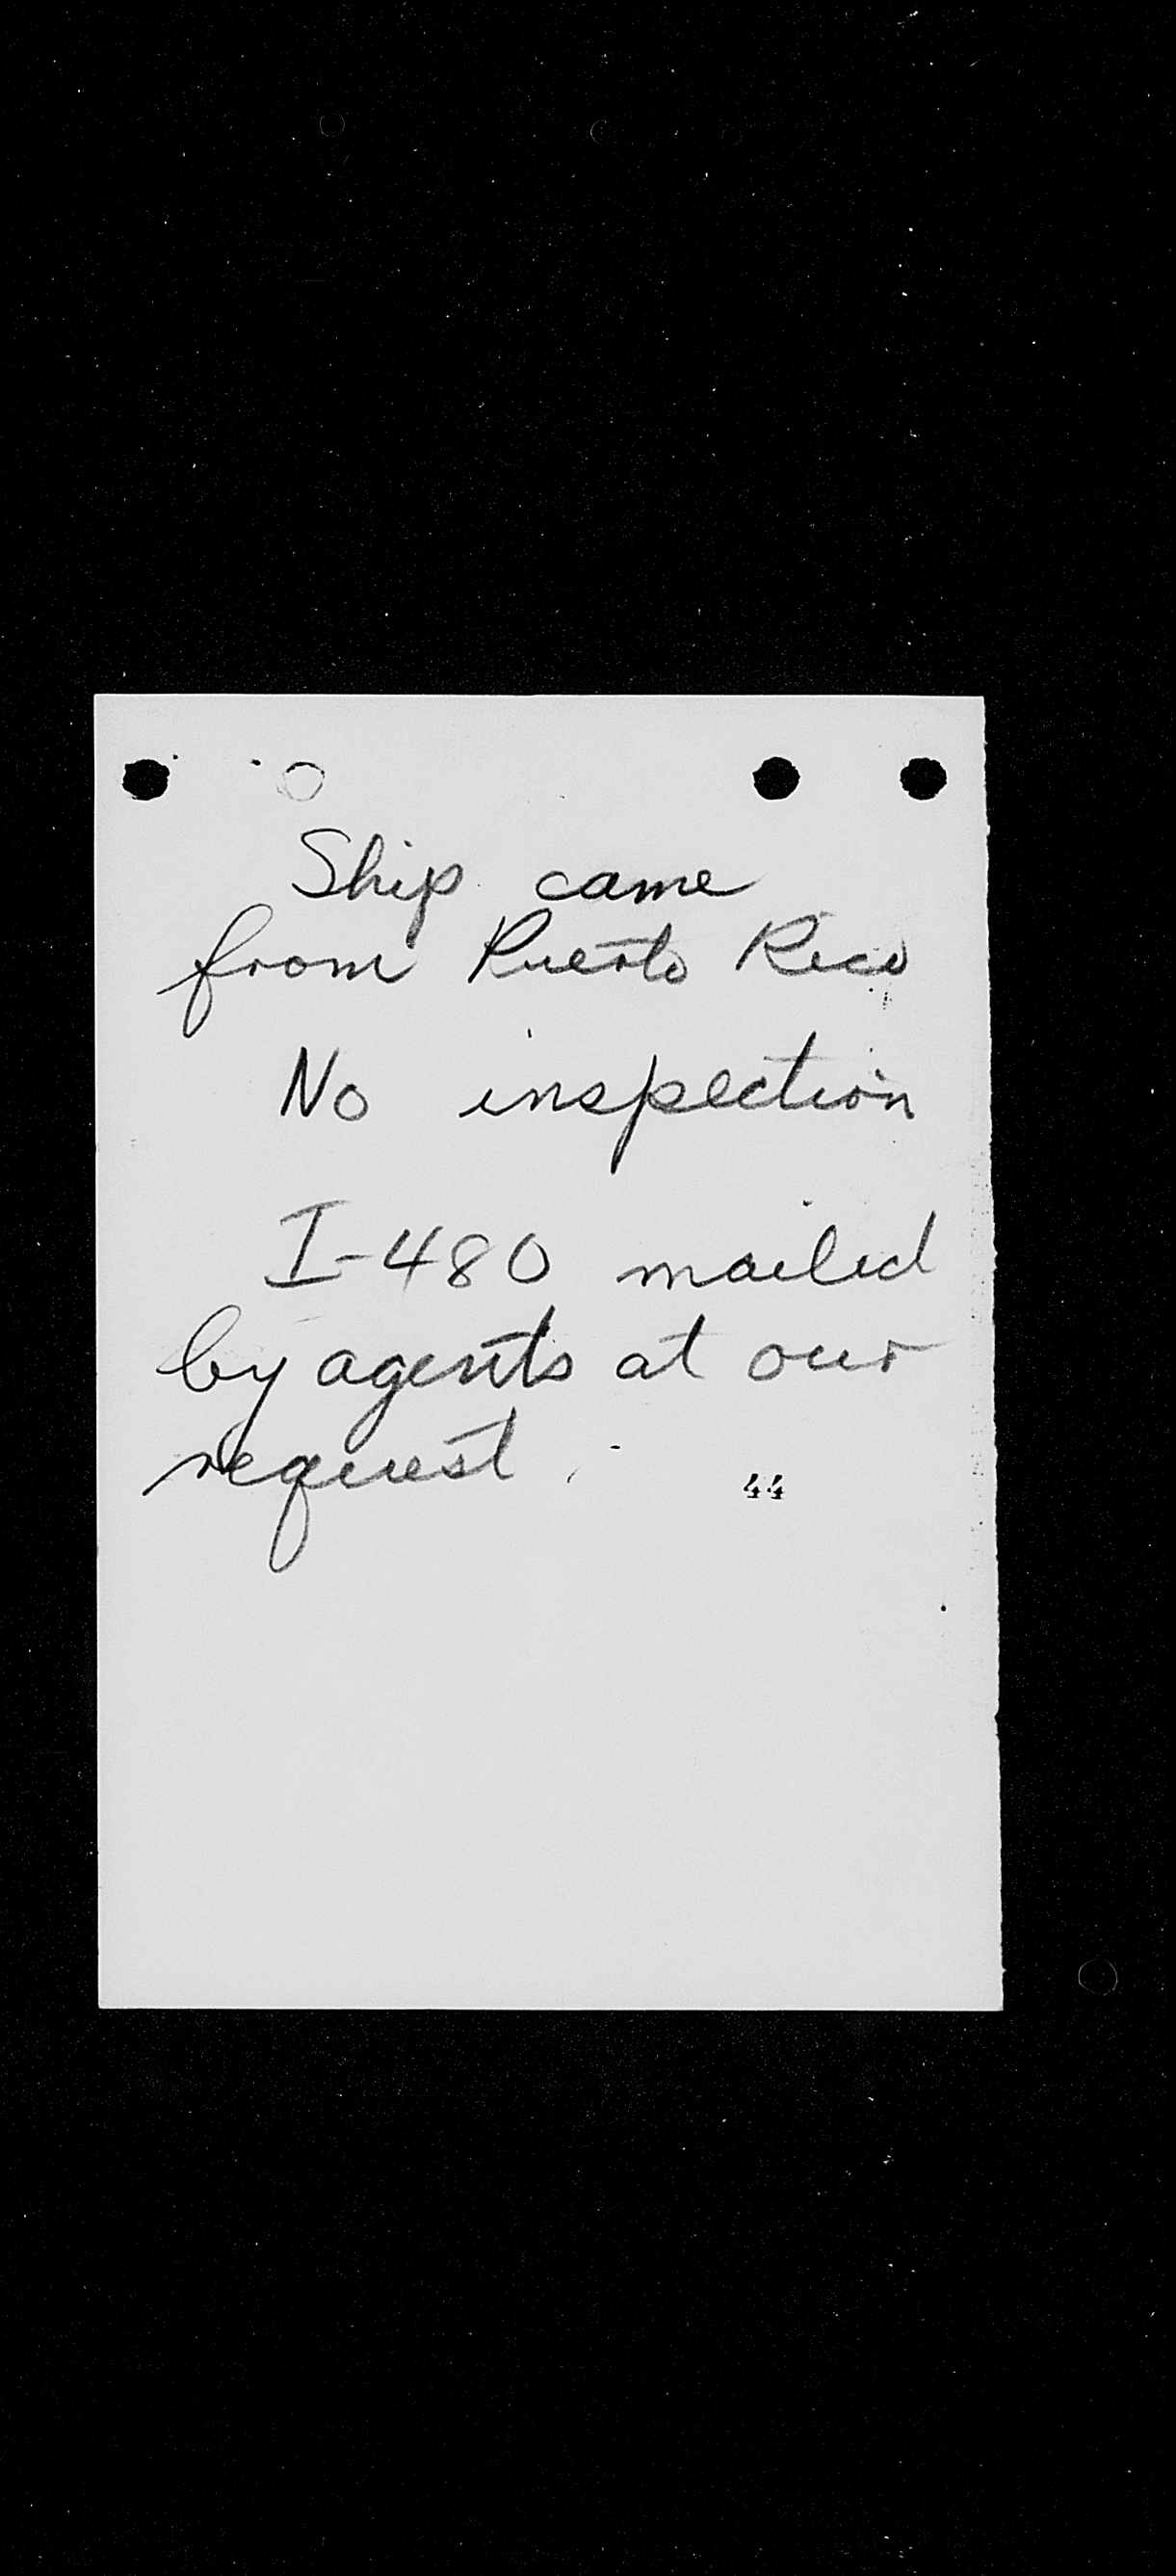 Ship came
from Puerto Rico
No inspection
I-480 mailed
by agents at our
request.
44